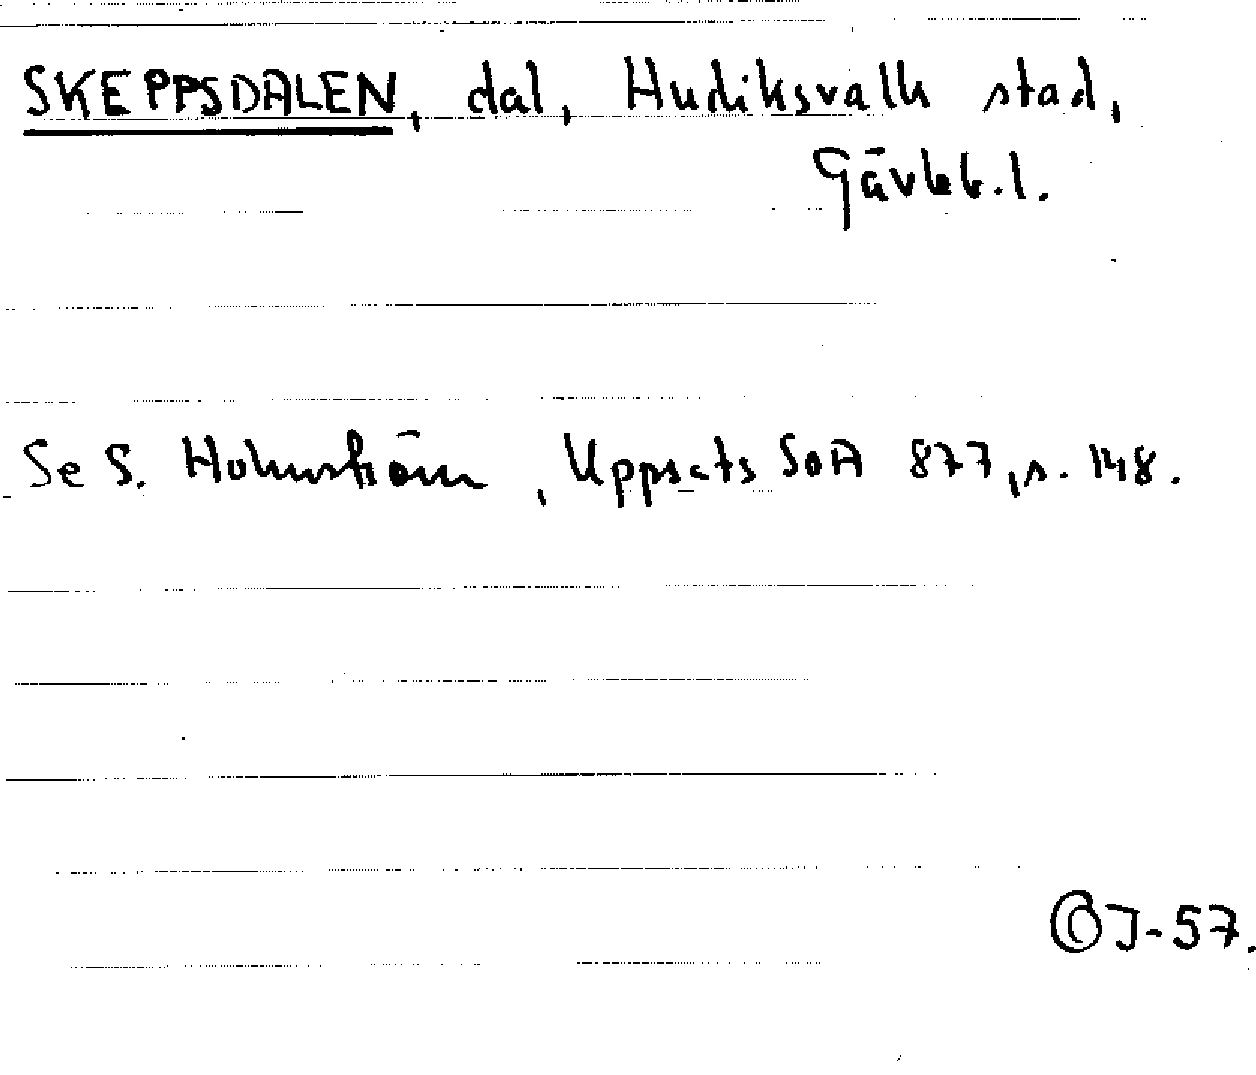 SKEPPSDALEN, dal, Hudiksvalls stad,
Gävleb.l.
Se S. Holmström, Uppsats SOA 877, s. 148.
J-57.